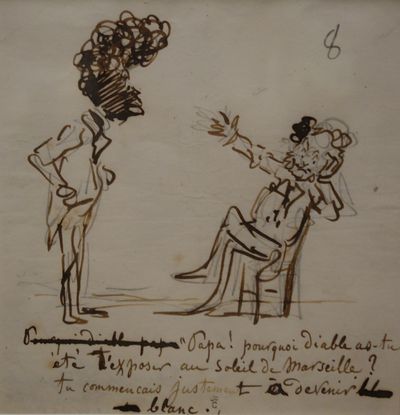 8
Pourquoi diable papa "Papa! pourquoi diable as-tu
été t'exposer au soleil de Marseille?
tu commencais justement à devenir
blanc.